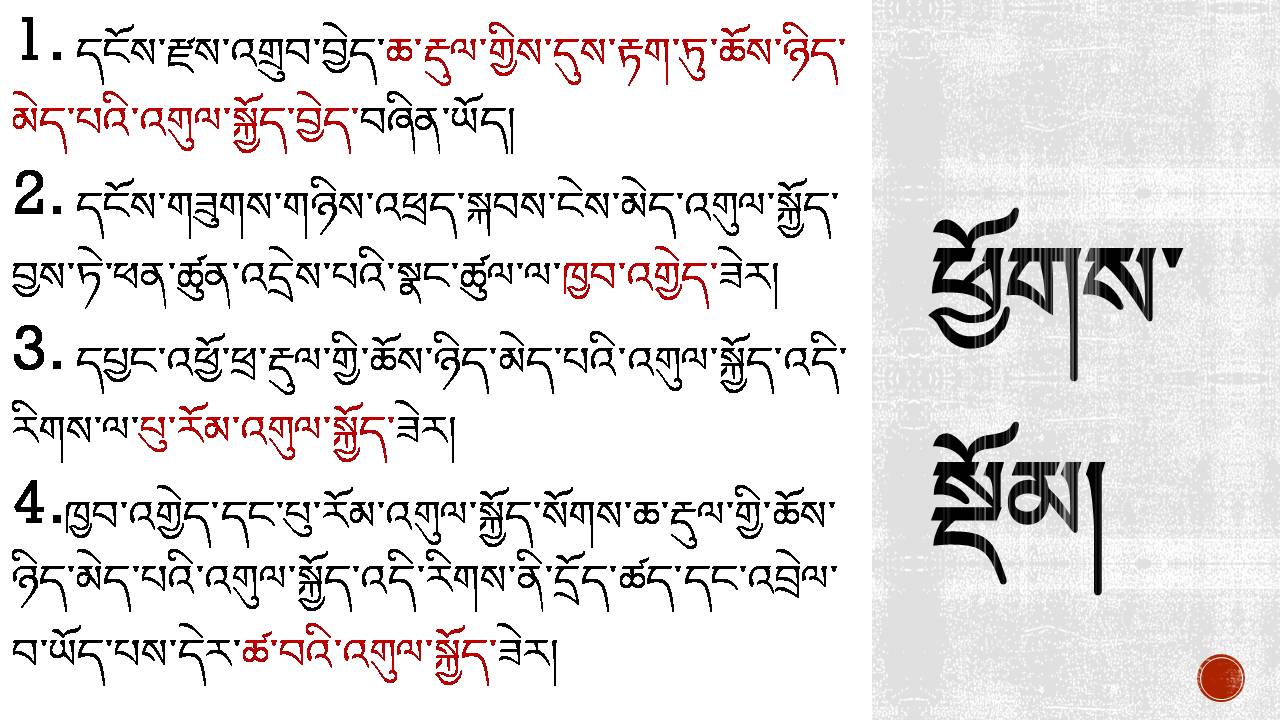 1. དངོས་རྫས་འགྲུབ་བྱེད་ཆ་རྡུལ་གྱིས་དུས་རྟག་ཏུ་ཆོས་ཉིད་
མེད་པའི་འགུལ་སྐྱོད་བྱེད་བཞིན་ཡོད།
2. དངོས་གཟུགས་གཉིས་འཕྲད་སྐབས་ངེས་མེད་འགུལ་སྐྱོད་
བྱས་ཏེ་ཕན་ཚུན་འདྲེས་པའི་སྣང་ཚུལ་ལ་ཁྱབ་འགྱེད་ཟེར།
3. དཔྱང་འཕྱོ་ཕྲ་རྡུལ་གྱི་ཆོས་ཉིད་མེད་པའི་འགུལ་སྐྱོད་འདི་
རིགས་ལ་པུ་རོམ་འགུལ་སྐྱོད་ཟེར།
4.ཁྱབ་འགྱེད་དང་པུ་རོམ་འགུལ་སྐྱོད་སོགས་ཆ་རྡུལ་གྱི་ཆོས་
ཉིད་མེད་པའི་འགུལ་སྐྱོད་འདི་རིགས་ནི་དྲོད་ཚད་དང་འབྲེལ་
བ་ཡོད་པས་དེར་ཚ་བའི་འགུལ་སྐྱོད་ཟེར།
ཕྱོགས་
སྡོམ།